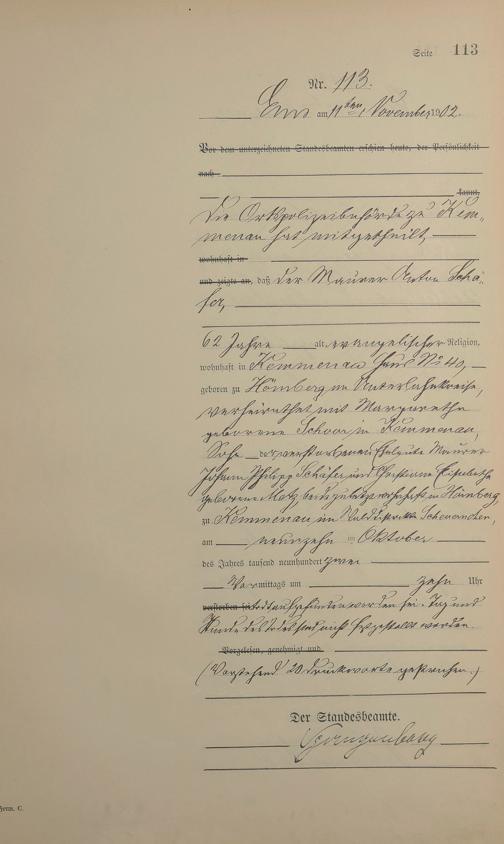 Seite 113
Nr. 113.
Ems am 11ten November 1902.
Vor dem unterzeichneten Standesbeamten erschien heute, der Persönlichkeit
nach
kannt,
Die Ortspolizeibehörde zu Kem-
menau hat mitgetheilt,
wohnhaft in
und zeigte an, daß der Maurer Anton Schä-
fer,
62 Jahre alt, evangelischer Religion,
wohnhaft in Kemmenau Haus No 40,
geboren zu Hömberg im Unterlahnkreise,
verheirathet mit Margarethe
geborene in Kemmenau,
Sohn der verstorbenen Eheleute Maurer
Johann Philipp Schäfer und Christiane Elisabethe
geborene Metz, beide zuletzt wohnhaft in Hömberg,
zu Kemmenau im Walddistrikte
am neunzehn ten Oktober
des Jahres tausend neunhundert zwei
Vormittags um zehn Uhr
verstorben sei todt aufgefunden worden sei. Tag und
Stunde des Todes sind nicht festgestellt worden.
Vorgelesen, genehmigt und
(Vorstehend 20 Druckworte gestrichen.)
Der Standesbeamte.
C.